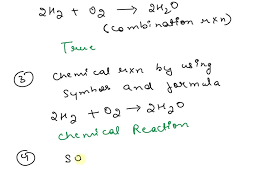 2H₂ + O₂ → 2H₂O
(combination rxn)
True
③ chemical rxn by using
symbol and formula
2H₂ + O₂ → 2H₂O
chemical Reaction
④ SO